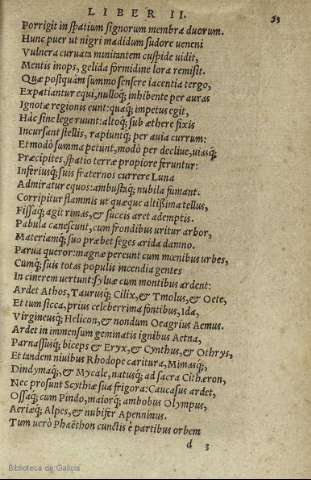 LIBER II. 53
Porrigit in spatium signorum membra duorum.
Hunc puer ut nigri madidum sudore ueneni
Vulnera curuata minitantem cuspide uidit,
Mentis inops, gelida formidine lora remisit.
Quæ postquam summo sensere iacentia tergo,
Expatiantur equi, nulloq; inhibente per auras
Ignotæ regionis eunt: quaq; impetus egit,
Hac sine lege ruunt: altoq; sub æthere fixis
Incursant stellis, rapiuntq; per auia currum:
Et modò summa petunt, modò per decliue, uiasq;
Præcipites, spatio terræ propiore feruntur:
Inferiusq; suis fraternos currere Luna
Admiratur equos: ambustaq; nubila fumant.
Corripitur flammis ut quæque altissima tellus,
Fissaq; agit rimas, & succis aret ademptis.
Pabula canescunt, cum frondibus uritur arbor,
Materiamq; suo præbet seges arida damno.
Parua queror: magnæ pereunt cum mœnibus urbes,
Cumq; suis totas populis incendia gentes
In cinerem uertunt: syluæ cum montibus ardent:
Ardet Athos, Taurusq; Cilix, & Tmolus, & Oete,
Et tum sicca, prius celeberrima fontibus, Ida,
Virgineusq; Helicon, & nondum Oeagrius Aemus.
Ardet in immensum geminatis ignibus Aetna,
Parnassusq; biceps & Eryx, & Cynthus, & Othrys,
Et tandem niuibus Rhodope caritura, Mimasq;,
Dindymaq;, & Mycale, natusq; ad sacra Cithæron,
Nec prosunt Scythiæ sua frigora: Caucasus ardet,
Ossaq; cum Pindo, maiorq; ambobus Olympus,
Aeriæq; Alpes, & nubifer Apenninus.
Tum uerò Phaëthon cunctis è partibus orbem
d 3
Biblioteca de Galicia